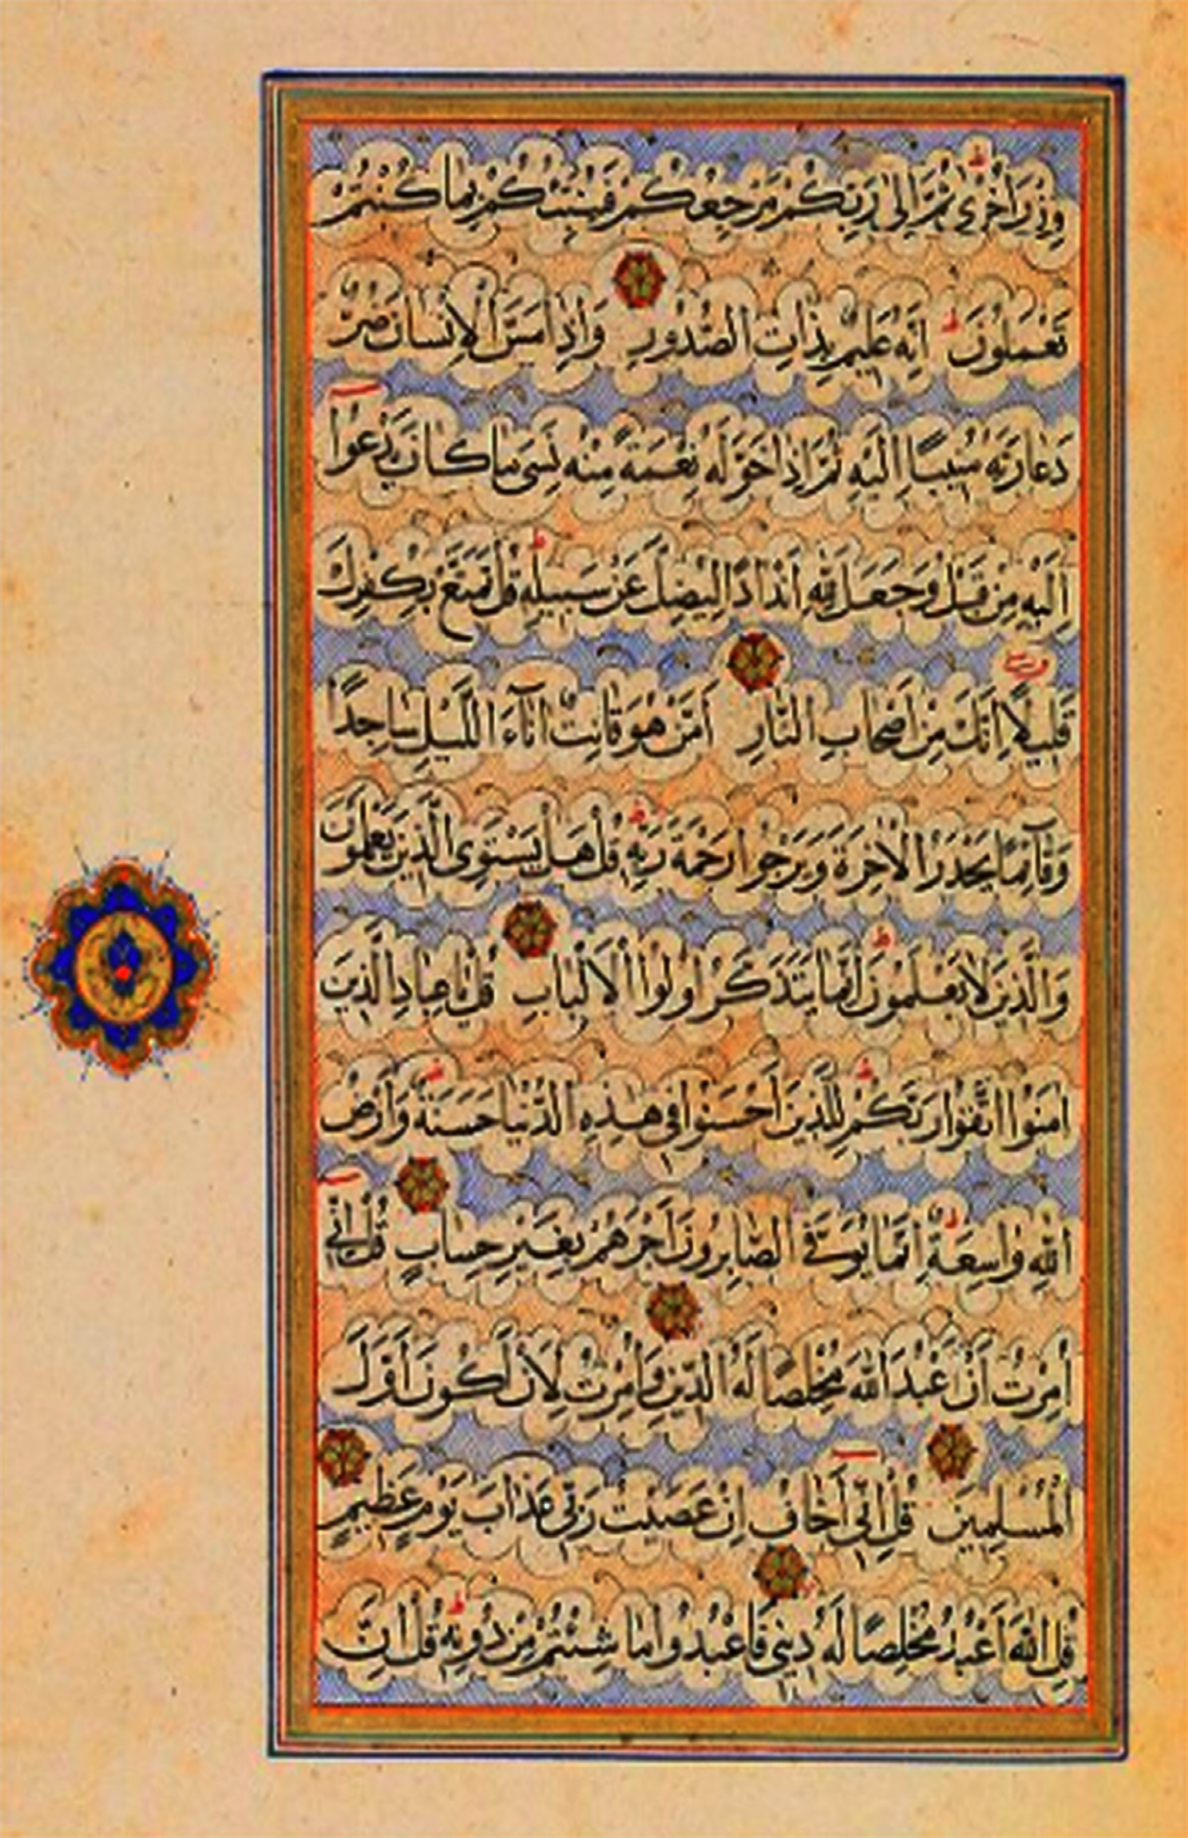 وِزْرَ أُخْرَىٰ ثُمَّ إِلَىٰ رَبِّكُمْ مَرْجِعُكُمْ فَيُنَبِّئُكُمْ بِمَا كُنْتُمْ
تَعْمَلُونَ ط إِنَّهُ عَلِيمٌ بِذَاتِ الصُّدُورِ وَإِذَا مَسَّ الْإِنْسَانَ ضُرٌّ
دَعَا رَبَّهُ مُنِيبًا إِلَيْهِ ثُمَّ إِذَا خَوَّلَهُ نِعْمَةً مِنْهُ نَسِىَ مَا كَانَ يَدْعُوا
إِلَيْهِ مِنْ قَبْلُ وَجَعَلَ لِلّٰهِ أَنْدَادًا لِيُضِلَّ عَنْ سَبِيلِهِ ط قُلْ تَمَتَّعْ بِكُفْرِكَ
قَلِيلًا إِنَّكَ مِنْ أَصْحَابِ النَّارِ أَمَّنْ هُوَ قَانِتٌ آنَاءَ اللَّيْلِ سَاجِدًا
وَقَآئِمًا يَحْذَرُ الْآخِرَةَ وَيَرْجُوا رَحْمَةَ رَبِّهِ ط قُلْ هَلْ يَسْتَوِى الَّذِينَ يَعْلَمُونَ
وَالَّذِينَ لَا يَعْلَمُونَ ط إِنَّمَا يَتَذَكَّرُ أُولُوا الْأَلْبَابِ قُلْ يَا عِبَادِ الَّذِينَ
اٰمَنُوا اتَّقُوا رَبَّكُمْ ط لِلَّذِينَ أَحْسَنُوا فِى هٰذِهِ الدُّنْيَا حَسَنَةٌ ط وَأَرْضُ
اللّٰهِ وَاسِعَةٌ ط إِنَّمَا يُوَفَّى الصَّابِرُونَ أَجْرَهُمْ بِغَيْرِ حِسَابٍ قُلْ إِنِّى
أُمِرْتُ أَنْ أَعْبُدَ اللّٰهَ مُخْلِصًا لَهُ الدِّينَ وَأُمِرْتُ لِأَنْ أَكُونَ أَوَّلَ
الْمُسْلِمِينَ قُلْ إِنِّى أَخَافُ إِنْ عَصَيْتُ رَبِّى عَذَابَ يَوْمٍ عَظِيمٍ
قُلِ اللّٰهَ أَعْبُدُ مُخْلِصًا لَهُ دِينِى فَاعْبُدُوا مَا شِئْتُمْ مِنْ دُونِهِ ط قُلْ إِنَّ